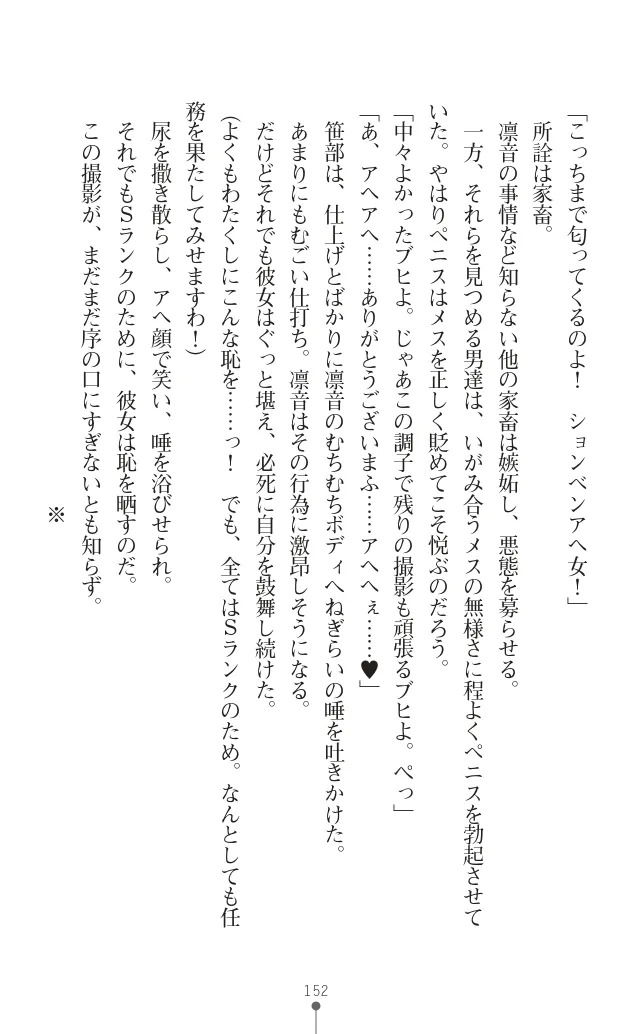 「こっちまで匂ってくるのよ！　ションベンアヘ女！」
所詮は家畜。
凛音の事情など知らない他の家畜は嫉妬し、悪態を募らせる。
一方、それらを見つめる男達は、いがみ合うメスの無様さに程よくペニスを勃起させて
いた。やはりペニスはメスを正しく貶めてこそ悦ぶのだろう。
「中々よかったブヒよ。じゃあこの調子で残りの撮影も頑張るブヒよ。ぺっ」
「あ、アヘアヘ……ありがとうございまふ……アヘヘぇ……♥」
笹部は、仕上げとばかりに凛音のむちむちボディへねぎらいの唾を吐きかけた。
あまりにもむごい仕打ち。凛音はその行為に激昂しそうになる。
だけどそれでも彼女はぐっと堪え、必死に自分を鼓舞し続けた。
（よくもわたくしにこんな恥を……っ！　でも、全てはＳランクのため。なんとしても任
務を果たしてみせますわ！）
尿を撒き散らし、アヘ顔で笑い、唾を浴びせられ。
それでもＳランクのために、彼女は恥を晒すのだ。
この撮影が、まだまだ序の口にすぎないとも知らず。
※
152